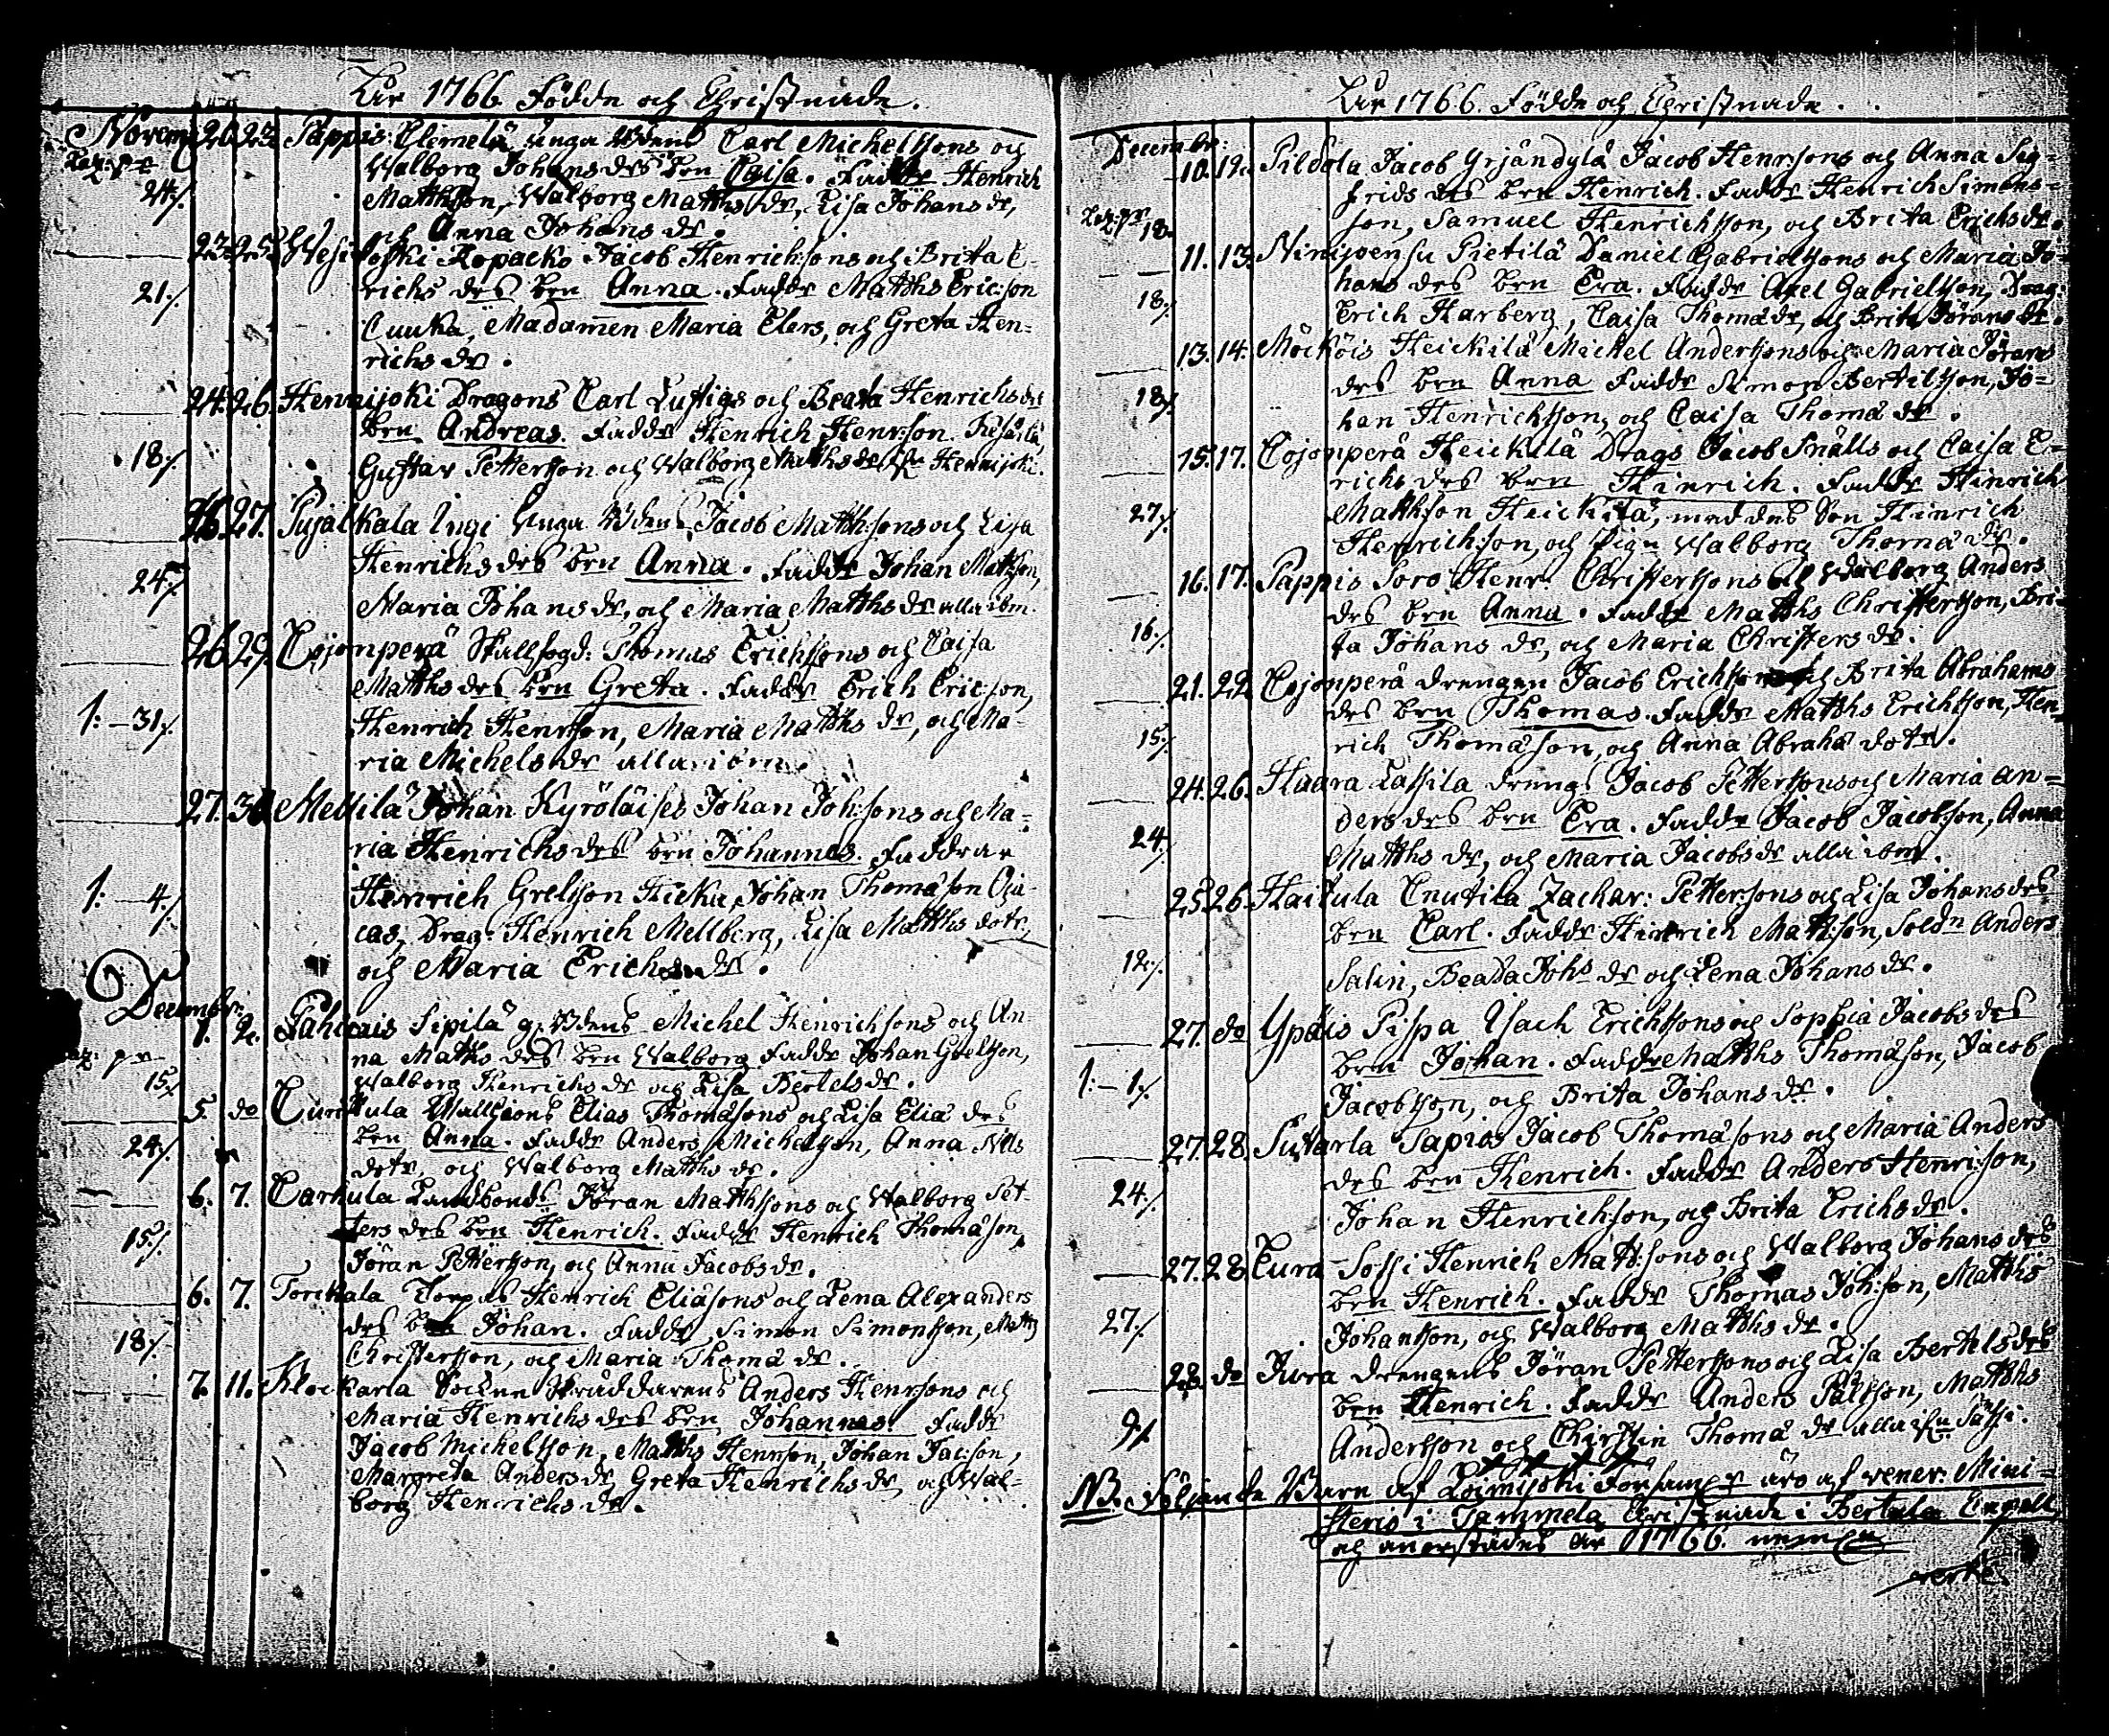 Åhr 1766 Födde och Christnade.
Novemb. 20. 23. Pappis Elemelä unga Wdens Carl Michelssons och
Walborg Johansdrs brn Caisa. Faddr Henrich
24/. Matthsson, Walborg Matthsdr, Lisa Johansdr,
och Anna Johansdr.
23. 25. Wesikoski Kopacko Jacob Henrichsons och Brita E-
21./. richsdrs brn Anna. Faddr Matths Ericson
Cuuka, Madamen Maria Elers, och Greta Hen-
richsdr.
24. 26. Hennijoki Dragons Carl Lustigs och Beata Henrichsdrs
brn Andreas. Faddr Henrich Henrson
18/. Gustav Petterson och Walborg Matthsdr fr Hennijoki.
26. 27. Pujalkala Ingi unga Wdens Jacob Matthsons och Lisa
Henrichsdrs brn Anna. Faddr Johan Mattsson,
24./. Maria Johansdr, och Maria Matthsdr alla ibm.
26. 29. Cojonperä Skallfogd: Thomas Erichssons och Caisa
Matthsdrs brn Greta. Faddr Erich Ericson,
1: - 31/. Henrich Henrsson, Maria Matthsdr, och Ma-
ria Michelsdr alla ibm.
27. 30. Mellilä Johan Kyröläises Johan Johsons och Ma-
ria Henrichsdrs brn Johannes. Faddrar
1: - 4./. Henrich Grelsson Hicka, Johan Thomasson Oja-
cas, Drag: Henrich Mellberg, Lisa Matthsdotr,
och Maria Erichsdr.
Decembr:
1. 2. Pahicais Sipilä g. Wdens Michel Henrichsons och An-
na Matthsdrs brn Walborg Faddr Johan Grelsson,
15/. Walborg Henrichsdr och Lisa Bertelsdr.
5. do Curittula Elias Thomasons och Lisa Eliädrs
24/. brn Anna. Faddr Anders Michelsson, Anna Nils
dotr, och Walborg Matthsdr.
6. 7. Carhula Landbonds Jöran Matthssons och Walborg Pet-
ters drs brn Henrich. Faddr Henrich Thomasson,
15/. Jöran Pettersson, och Anna Jacobsdr.
6. 7. Torckala Torpas Henrich Eliäsons och Lena Alexanders
drs brn Johan. Faddr Simon Simonsson, Matts
18/. Christersson, och Maria Thomädr.
7. 11. Klockarla Sockne Skräddarens Anders Henrssons och
Maria Henrichsdrs brn Johannes. Faddr
Jacob Michelsson, Matths Henrsson, Johan Jacson,
Margreta Andersdr, Greta Henrichsdr, och Wal-
borg Henrichsdr.
Åhr 1766. Födde och Christnade.
Decembr:
10. 12. Pildola Jacob Yrjändylä Jacob Henrsons och Anna Sig-
fridsdrs brn Henrich. Faddr Henrich Simons-
18. son, Samuel Henrichsson, och Brita Erichsdr.
11. 13. Ninijoensu Pietilä Daniel Gabrielssons och Maria Jo-
hansdrs brn Eva. Faddr Axel Gabrielsson, Drag:
18/. Erich Harberg, Caisa Thomädr, och Brita Jöransdr.
13. 14. Möcköis Heickilä Michel Anderssons och Maria Jörans
drs brn Anna Faddr Simon Bertilsson, Jo-
18/. han Henrichsson, och Caisa Thomädr.
15. 17. Cojonperä Heickilä Drags Jacob Snälls och Caisa E-
richsdrs brn Hinrich. Faddr Hinrich
27/. Mattsson Heickilä, med des Son Hinrich
Henrichson, och Pign Walborg Thomädr.
16. 17. Pappis Soro Henr. Christerssons och Walborg Anders
drs brn Anna. Faddr Matths Christersson, Bri-
16./. ta Johansdr, och Maria Christersdr.
21. 22. Cojonperä drengen Jacob Erichsons och Brita Abrahams
drs brn Thomas. Faddr Matths Erichsson, Hen-
15./. rich Thomäson, och Anna Abrahä dotr.
24. 26. Haara Lassila drengs Jacob Petterssons och Maria An-
dersdrs brn Eva. Faddr Jacob Jacobsson, Anna
24./. Matthsdr, och Maria Jacobsdr alla ibm.
25. 26. Haitula Cnutila Zachar: Pettersons och Lisa Johansdrs
brn Carl. Faddr Hinrich Mattsson, Soldn Anders
12./. Salin, Beata Johsdr och Lena Johansdr.
27. do Ypäis Pispa Isach Erichssons och Sophia Jacobsdrs
brn Johan. Faddr Matths Thomässon, Jacob
1: - 1./. Jacobsson, och Brita Johansdr.
27. 28. Suttarla Tapios Jacob Thomäsons och Maria Anders
drs brn Henrich. Faddr Anders Henrisson,
24./. Johan Henrichson, och Brita Erichsdr.
27. 28. Eura Sossi Henrich Mattsons och Walborg Johansdrs
brn Henrich. Faddr Thomas Johson, Matths
27./. Johansson, och Walborg Matthsdr.
28. do Jura drengens Jöran Petterssons och Lisa Bertelsdrs
brn Henrich. Faddr Anders Pålsson, Matths
9/. Andersson och Chirstin Thomädr alla ifrn Sässi.
NB. Följande Barn af Loimijoki Församl:r äro af vener: Mini-
sterio i Tammela Christnade i Bertula Capell
och annorstädes år 1766. nemln
verte